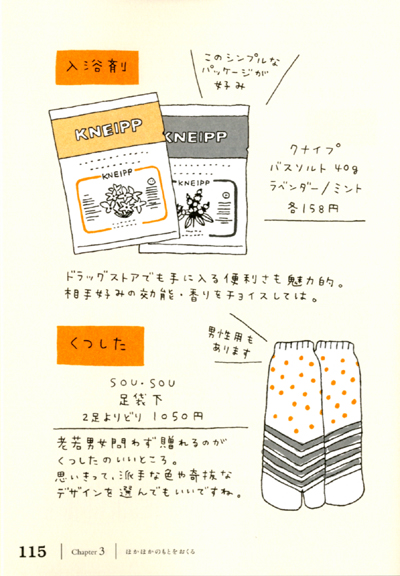 入浴剤
このシンプルな
パッケージが
好み
KNEIPP
KNEIPP
KNEIPP
KNEIPP
クナイプ
バスソルト 40g
ラベンダー/ミント
各158円
ドラッグストアでも手に入る便利さも魅力的。
相手好みの効能・香りをチョイスしては。
くつした
男性用も
あります
SOU・SOU
足袋下
2足よりどり 1050円
老若男女問わず贈れるのが
くつしたのいいところ。
思いきって、派手な色や奇抜な
デザインを選んでもいいですね。
115 Chapter 3 ほかほかのもとをおくる